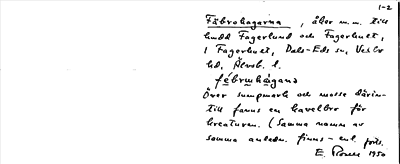 1-2
Fäbrohagarna, åker m.m. till
hudd Fagerlund och Fagerhuet,
1 Fagerhuet, Dals-Eds sn, Vedbo
hd, Älvsb. l.
fé̀brωhàgana
Över sumpmark och mosse därin-
till fanns en kavelbro för
kreaturen. (Samma namn av
samma anledn. finns - enl. förts.
E. 1950